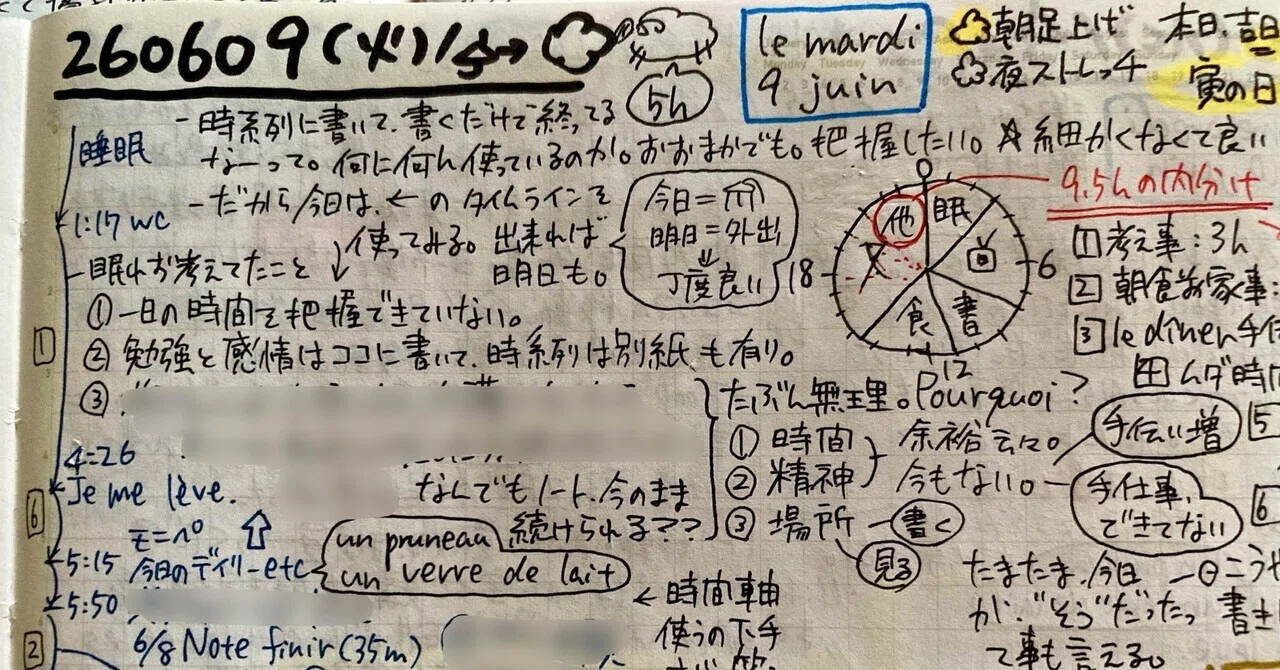 260609(火)/
5h
le mardi
9 juin
朝足上げ
夜ストレッチ
本日、吉日
寅の日
睡眠
-時系列に書いて、書くだけで終ってる
なーって。何に何h使っているのか。おおまかでも。把握したい。☆細かくなくて良い
1:17 wc
-だから今日は、←のタイムラインを
使ってみる。出来れば
明日も。
今日=
明日=外出
丁度良い
9.5hの内分け
他
眠
食
書
6
12
18
1 考え事:3h
2 朝食前家事:
3 le dîner 手伝
4 ムダ時間
5
6
-眠れず考えてたこと
①一日の時間を把握できていない。
②勉強と感情はココに書いて、時系列は別紙も有り。
③
1
4:26
Je me lève.
なんでもノート、今のまま
続けられる??
たぶん無理。Pourquoi?
①時間
②精神
余裕
今もない。
③場所
書く
見る
手伝い増
手仕事、
できてない
6
モーペ
5:15 今日のデイリーetc
un pruneau
un verre de lait
5:50
←時間軸
使うの下手
たまたま、今日
か、"そう"だった
て事も言える。
2
6/8 Note finir (35m)